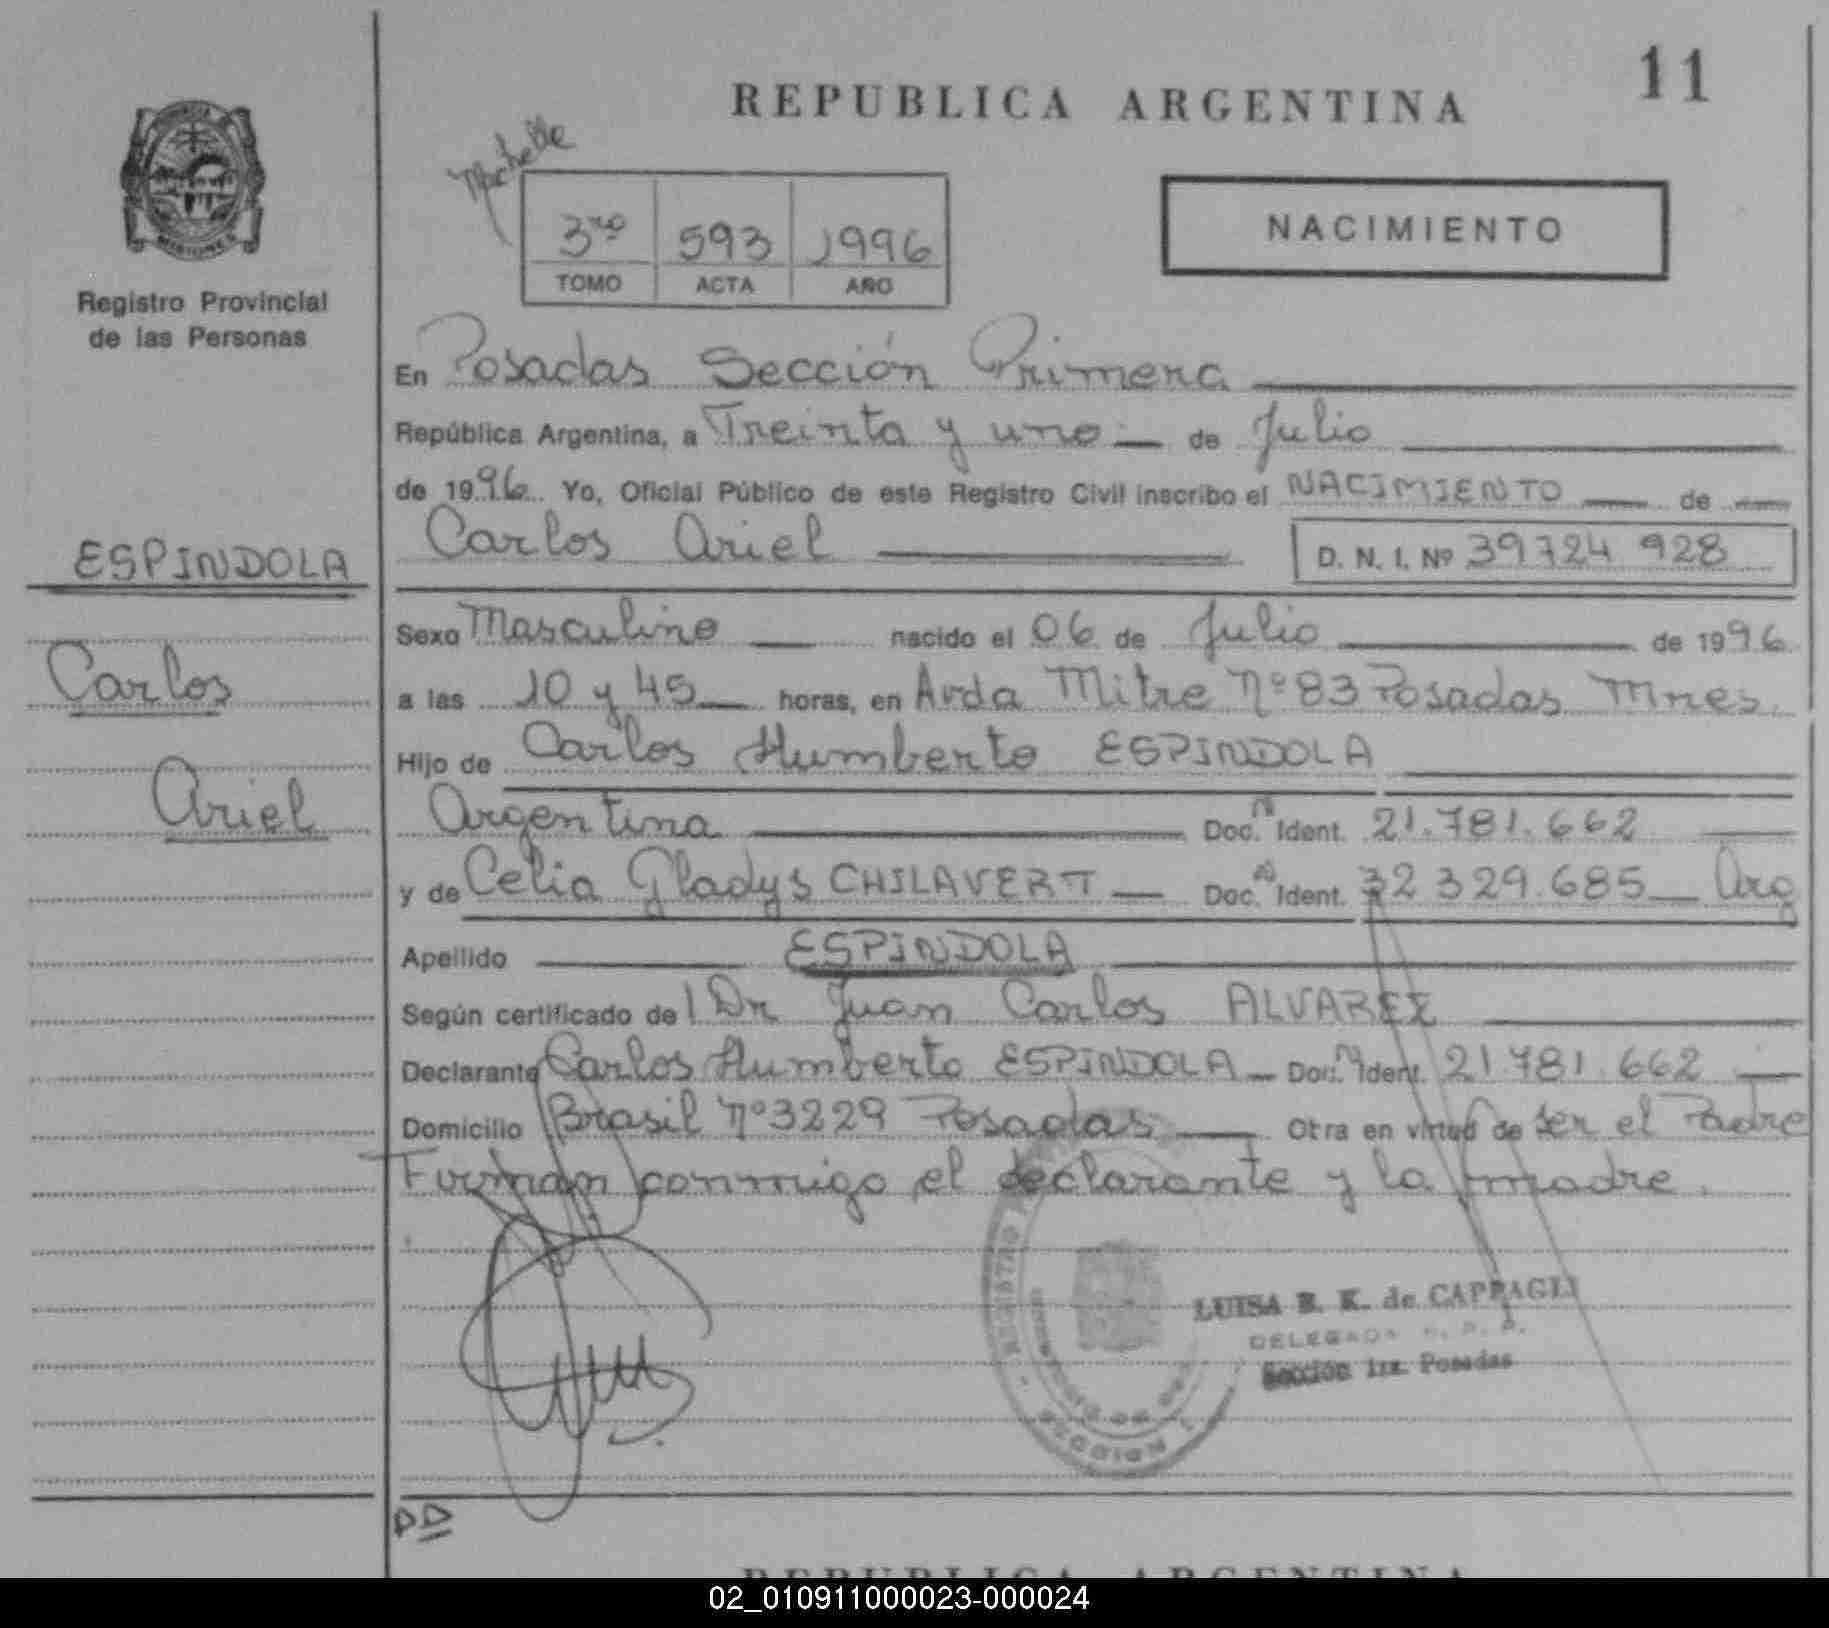 REPUBLICA ARGENTINA
11
Michelle
3ro 593 1996
TOMO ACTA AÑO
NACIMIENTO
MISIONES
Registro Provincial
de las Personas
En Posadas Sección Primera
República Argentina, a Treinta y uno de Julio
de 1996 Yo, Oficial Público de este Registro Civil inscribo el NACIMIENTO de
Carlos Ariel D. N. I. Nº 39724 928
ESPINDOLA
Carlos
Ariel
Sexo Masculino nacido el 06 de Julio de 1996
a las 10 y 45 horas, en Avda Mitre Nº 83 Posadas Mnes.
Hijo de Carlos Humberto ESPINDOLA
Argentina Doc. N Ident. 21.781.662
y de Celia Gladys CHILAVERT Doc. N Ident. 32 329.685 Arg
Apellido ESPINDOLA
Según certificado del Dr Juan Carlos ALVAREZ
Declarante Carlos Humberto ESPINDOLA Doc. N Ident. 21 781.662
Domicilio Brasil Nº 3229 Posadas Otra en virtud de ser el Padre
Firman conmigo el declarante y la madre.
LUISA B. K. de CAPPAGLI
DELEGADA R. P. P.
Sección 1ra. Posadas
SECCION 1
DD
REPUBLICA ARGENTINA
02_010911000023-000024